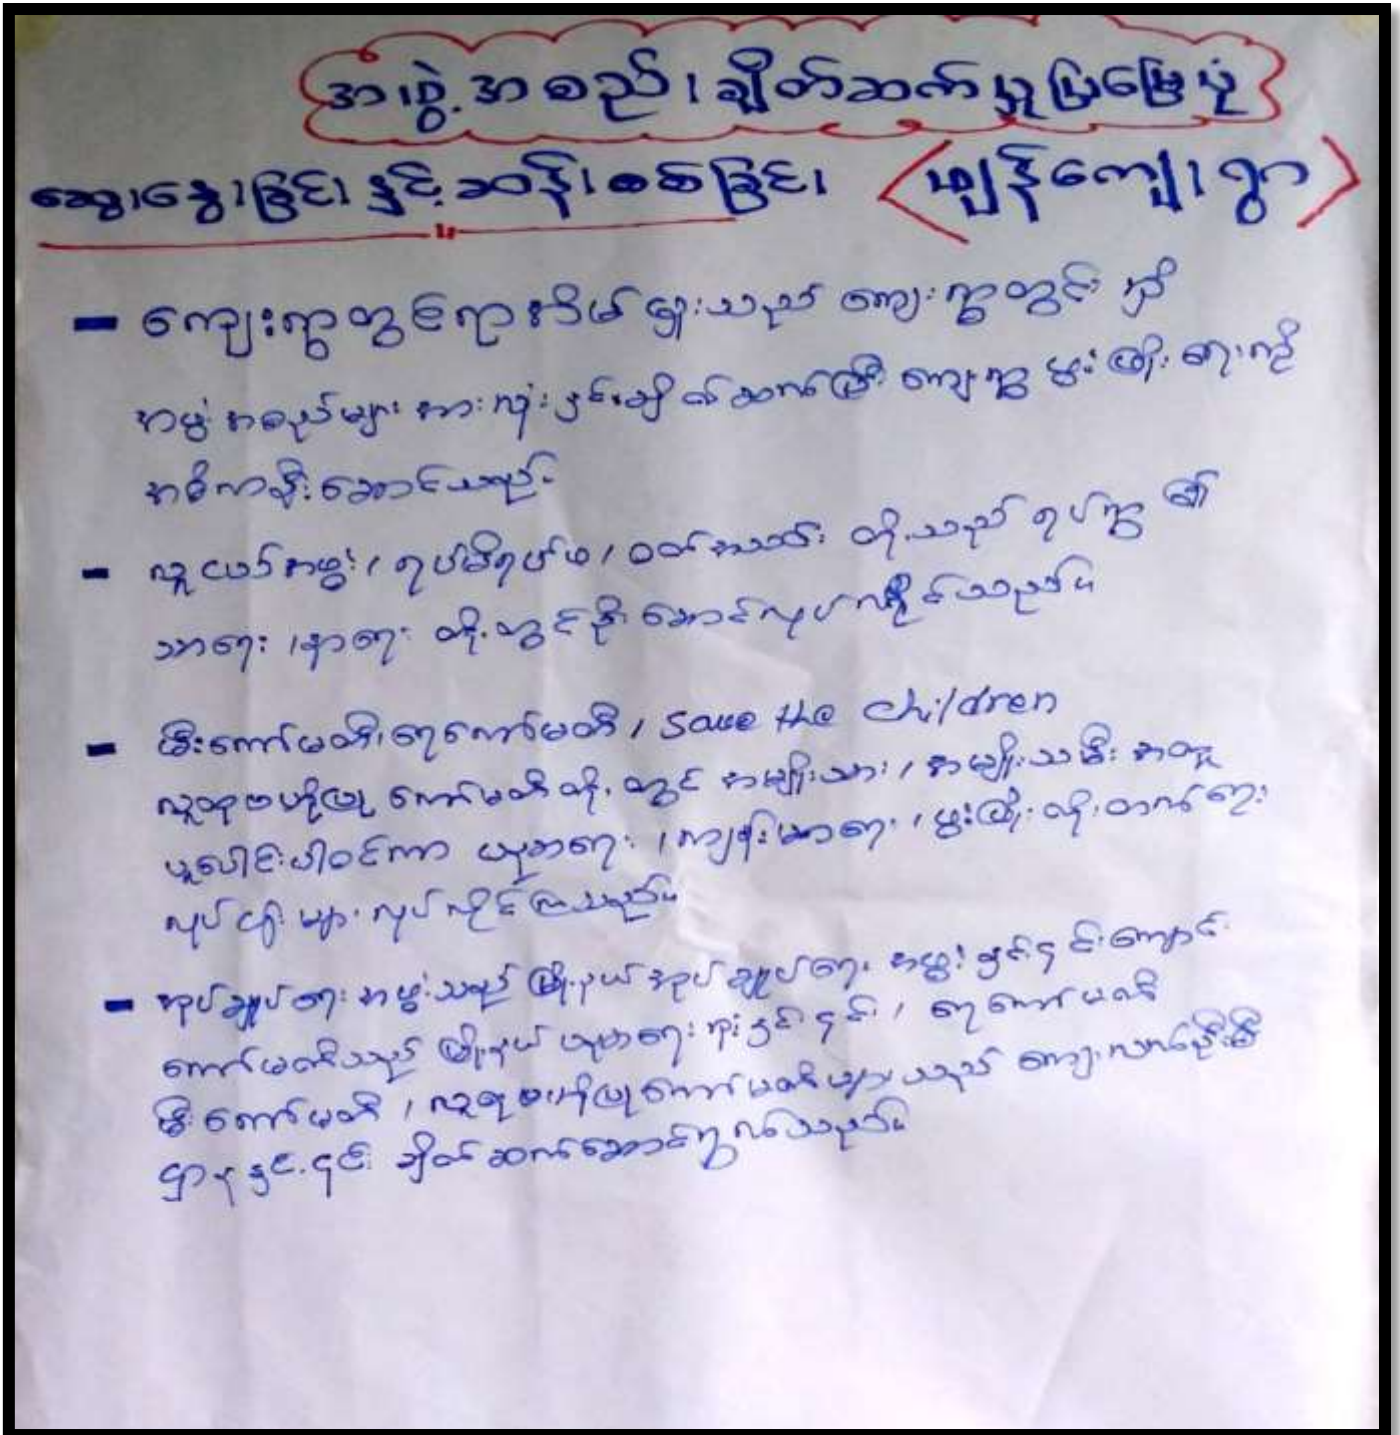 အဖွဲ့အစည်းချိတ်ဆက်မှုပြမြေပုံ
ဆွေးနွေးခြင်းနှင့်ဆန်းစစ်ခြင်း <ချုန်ကျေးရွာ>
- ကျေးရွာတွင်ရာအိမ်မှူးသည် ကျေးရွာတွင်းရှိ
အဖွဲ့အစည်းများအားလုံးနှင့်ချိတ်ဆက်ပြီး ကျေးရွာဖွံ့ဖြိုးရေးကို
အဓိကဦးဆောင်သည်။
- လူငယ်အဖွဲ့၊ ရပ်မိရပ်ဖ၊ ဝတ်အသင်း တို့သည် ရပ်ရွာ၏
သာရေး၊ နာရေး တို့တွင်ဦးဆောင်လုပ်ကိုင်သည်။
- မီးကော်မတီ၊ ရေကော်မတီ၊ Save the Children
လူထုဗဟိုပြု ကော်မတီတို့တွင် အမျိုးသား၊ အမျိုးသမီး အတူ
ပူးပေါင်းပါဝင်ကာ ပညာရေး၊ ကျန်းမာရေး၊ ဖွံ့ဖြိုးတိုးတက်ရေး
လုပ်ငန်းများ လုပ်ကိုင်ကြသည်။
- အုပ်ချုပ်ရေးအဖွဲ့သည် မြို့နယ်အုပ်ချုပ်ရေးအဖွဲ့နှင့်၎င်း ကျောင်း
ကော်မတီသည် မြို့နယ်ပညာရေးမှူးရုံးနှင့်၎င်း၊ ရေကော်မတီ
မီးကော်မတီ၊ လူထုဗဟိုပြုကော်မတီများသည် ကျေးလက်ဦးစီး
ဌာနနှင့်၎င်း ချိတ်ဆက်ဆောင်ရွက်သည်။